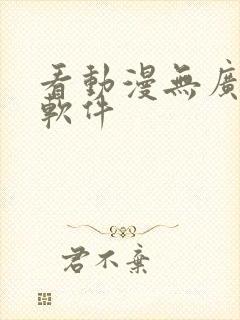 看動漫無廣
軟件
君不棄